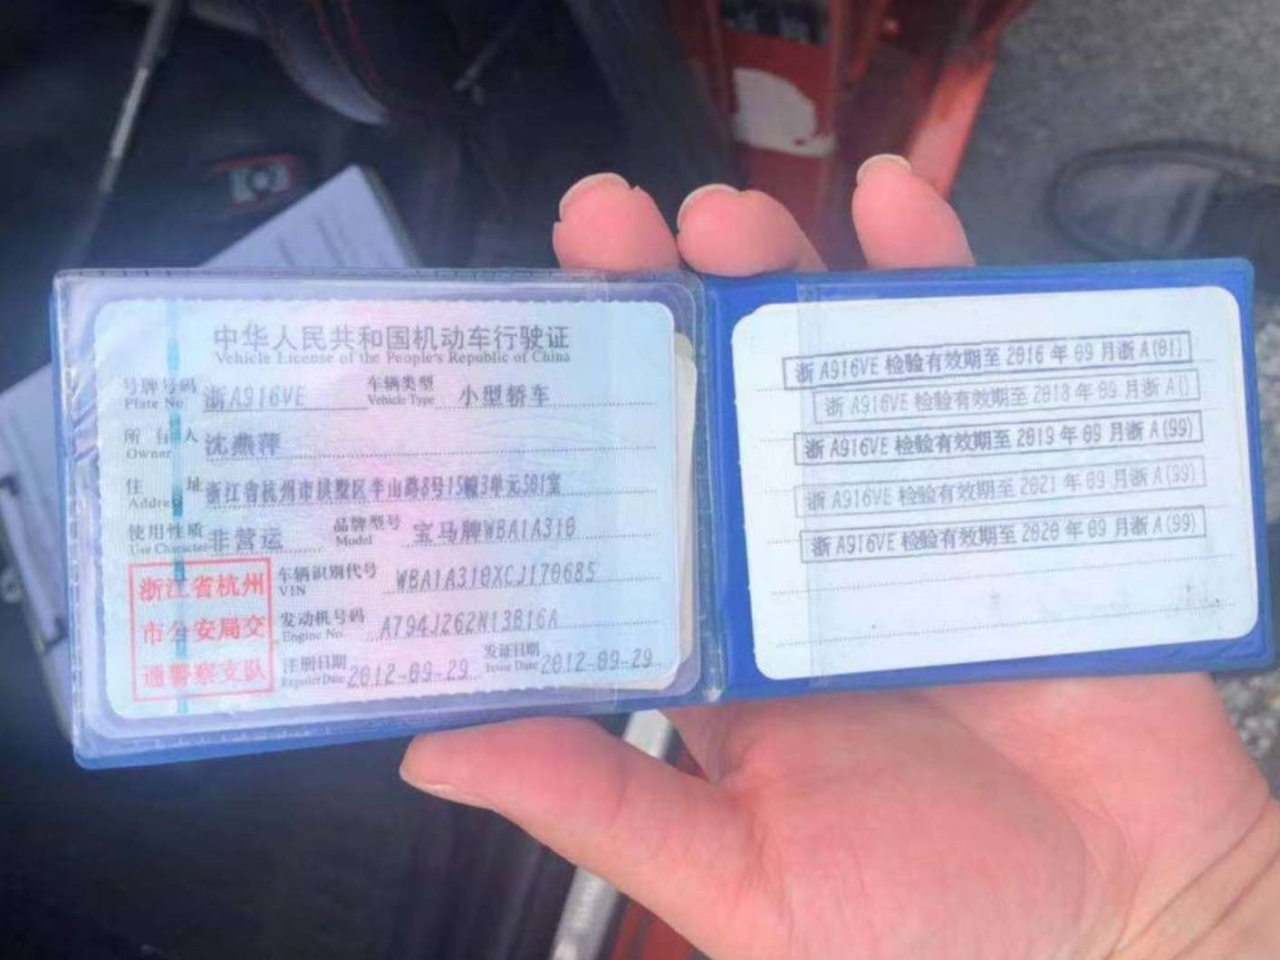 中华人民共和国机动车行驶证
Vehicle License of the People's Republic of China
号牌号码 浙A916VE 车辆类型 小型轿车
Plate No. Vehicle Type
所有人 沈燕萍
Owner
住址 浙江省杭州市拱墅区半山路8号15幢3单元501室
Address
使用性质 非营运 品牌型号 宝马牌WBA1A310
Use Character Model
浙江省杭州 车辆识别代号 WBA1A310XCJ170685
VIN
市公安局交 发动机号码 A794J262N13B16A
Engine No.
通警察支队 注册日期 2012-09-29 发证日期 2012-09-29
Register Date Issue Date
浙A916VE 检验有效期至 2016 年 09 月浙A(01)
浙A916VE 检验有效期至 2018 年 09 月浙A()
浙A916VE 检验有效期至 2019 年 09 月浙A(99)
浙A916VE 检验有效期至 2021 年 09 月浙A(99)
浙A916VE 检验有效期至 2020 年 09 月浙A(99)